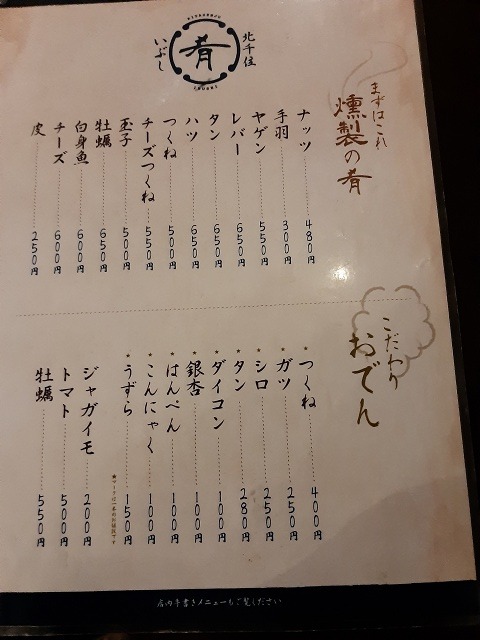 北千住
肴
いぶし
まずはこれ
燻製の肴
ナッツ 480円
手羽 300円
ヤゲン 550円
レバー 650円
タン 650円
ハツ 650円
つくね 500円
チーズつくね 550円
玉子 500円
牡蠣 650円
白身魚 600円
チーズ 600円
皮 250円
こだわり
おでん
★つくね 400円
★ガツ 250円
★シロ 250円
★タン 280円
★ダイコン 100円
★銀杏 100円
★はんぺん 100円
★こんにゃく 100円
★うずら 150円
ジャガイモ 200円
トマト 500円
牡蠣 550円
店内手書きメニューもご覧ください